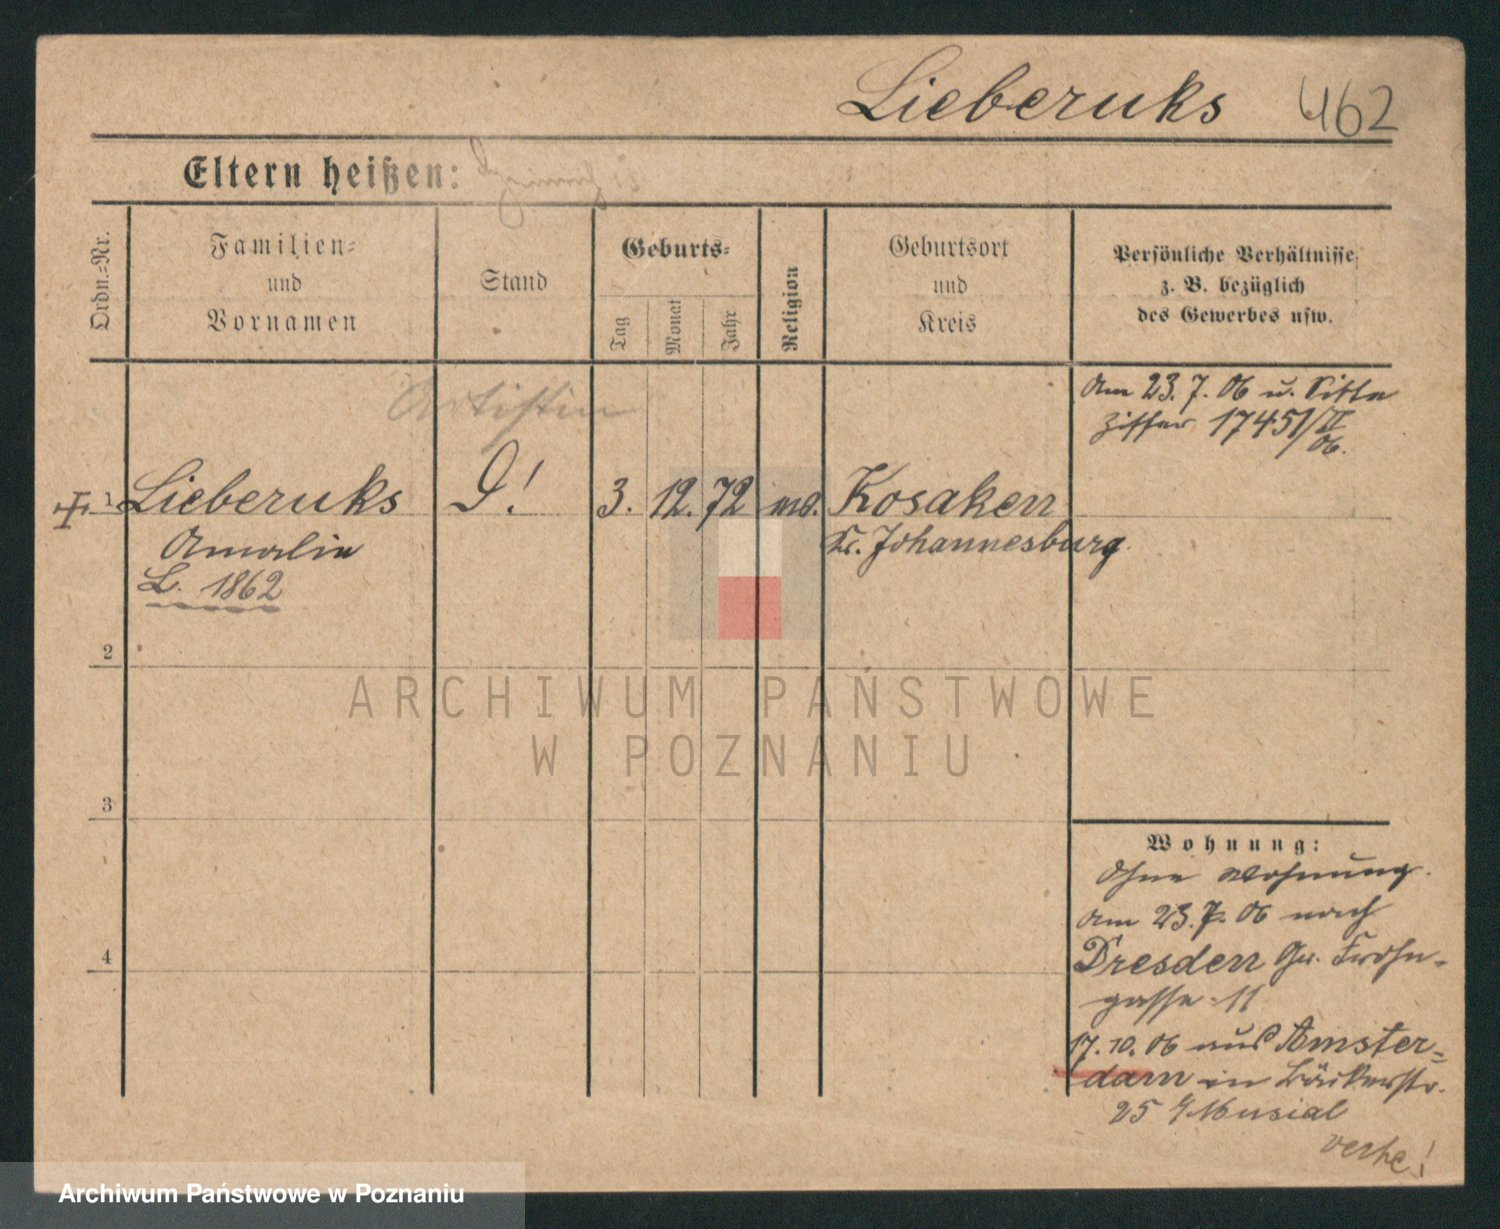 Lieberuks 462
Eltern heißen:
Ordn.=Nr.
Familien=
und
Vornamen
Stand
Geburts=
Tag
Monat
Jahr
Religion
Geburtsort
und
Kreis
Persönliche Verhältnisse
z. B. bezüglich
des Gewerbes usw.
Artistin
Am 23.7.06 u.
Ziffer 17451/II
06.
1 Lieberuks
Amalie
L. 1862
D!
3. 12. 72
Kosaken
Kr. Johannesburg
2
3
4
Wohnung:
Ohne Wohnung.
Am 23.7.06 nach
Dresden Gr. Frohn-
gasse 11
17.10.06 aus Amster-
dam in Bäckerstr.
25 b/Musial
verte!
ARCHIWUM PAŃSTWOWE
W POZNANIU
Archiwum Państwowe w Poznaniu